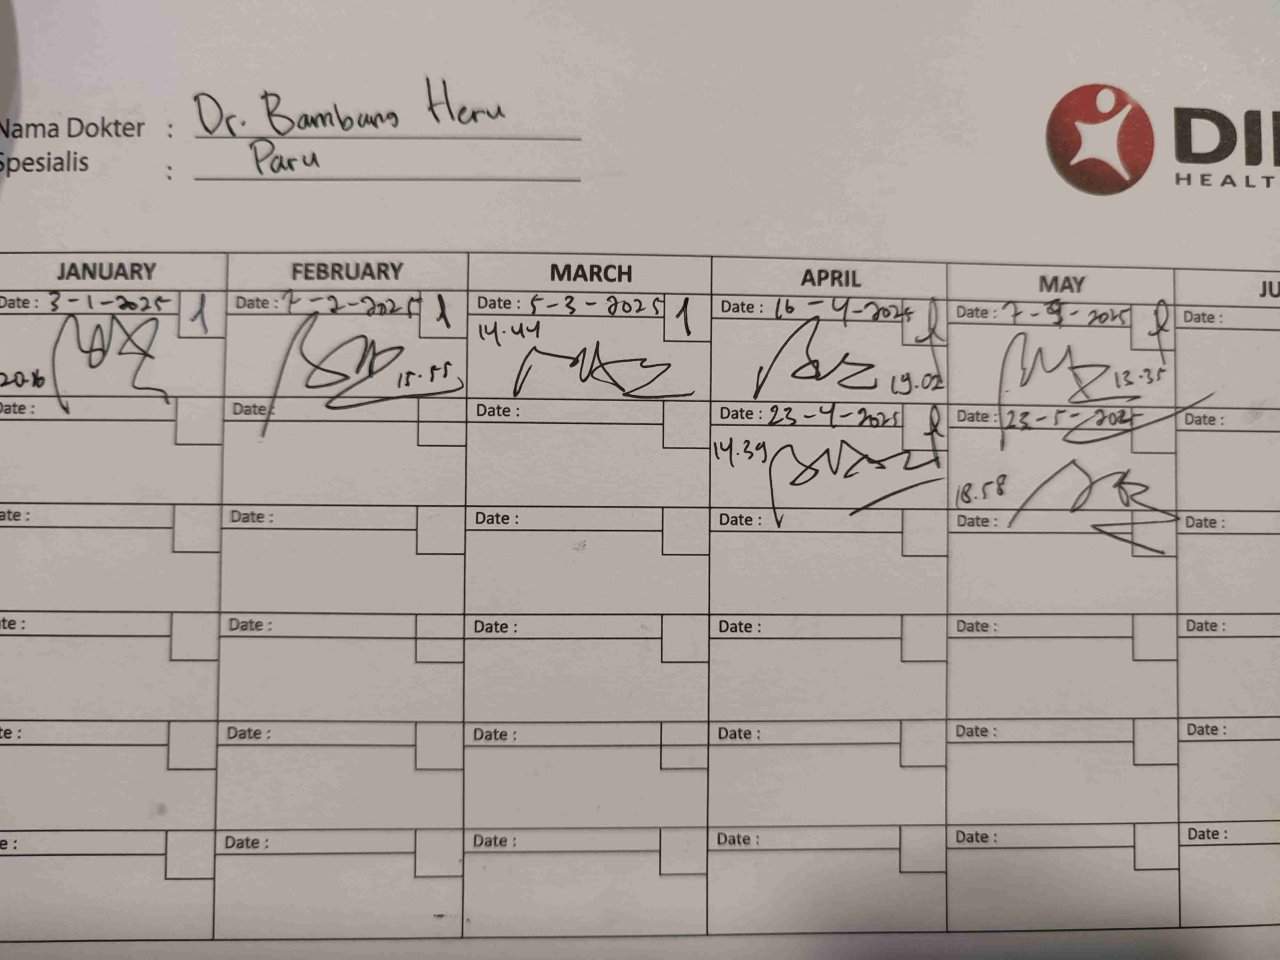 Nama Dokter : Dr. Bambang Heru
Spesialis : Paru
DI
HEALT
JANUARY FEBRUARY MARCH APRIL MAY JU
Date : 3-1-2025 1 Date : 7-2-2025 1 Date : 5-3-2025 1 Date : 16-4-2025 Date : 7-5-2025 Date :
20.16 15.55 14.44 19.02 13.35
Date : Date : Date : Date : 23-4-2025 Date : 23-5-2025 Date :
14.39 18.58
ate : Date : Date : Date : Date : Date :
te : Date : Date : Date : Date : Date :
te : Date : Date : Date : Date : Date :
e : Date : Date : Date : Date : Date :